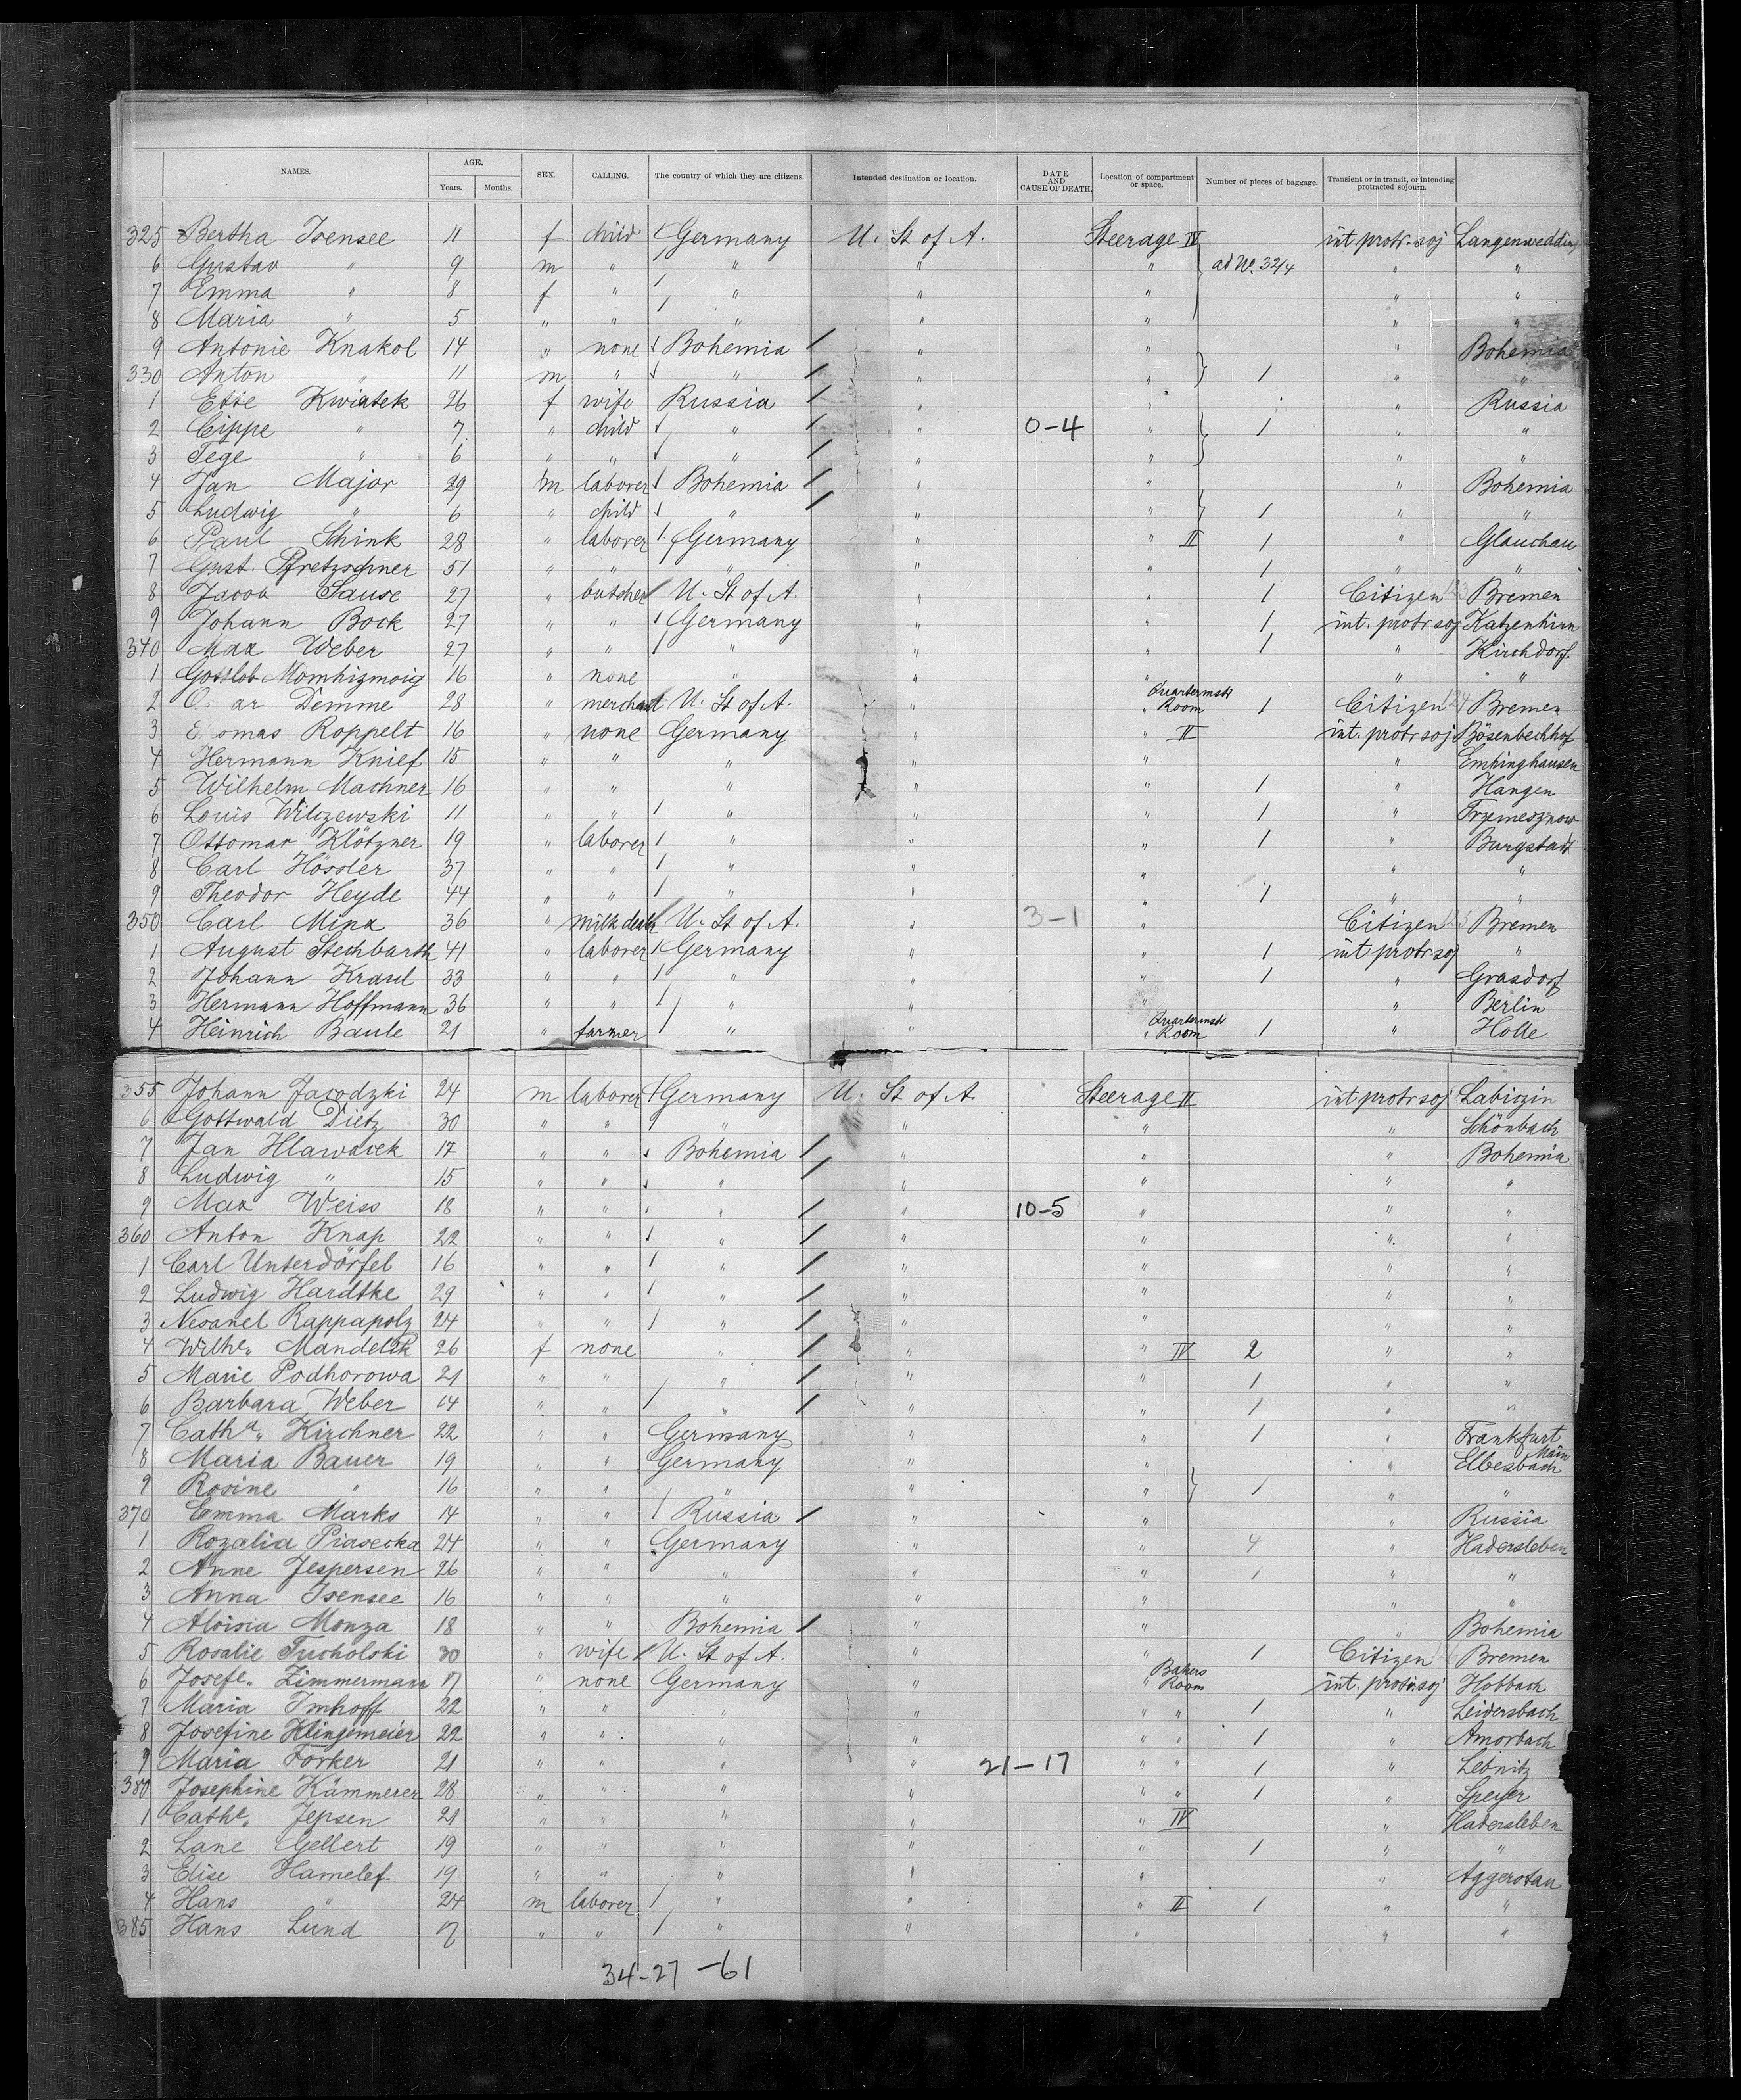 NAMES. AGE. Years. Months. SEX. CALLING. The country of which they are citizens. Intended destination or location. DATE AND CAUSE OF DEATH. Location of compartment or space. Number of pieces of baggage. Transient or in transit, or intending protracted sojourn.
325 Bertha Isensee 11 f child Germany U. St of A. Steerage IV int protr. soj Langenwedding
6 Gustav " 9 m " " " " ad No. 324 " "
7 Emma " 8 f " " " " " "
8 Maria " 5 " " " " " " "
9 Antonie Knakol 14 " none Bohemia " " " Bohemia
330 Anton " 11 m " " " " 1 " "
1 Etie Kwiatek 26 f wife Russia " " " Russia
2 Cippe " 7 " child " " 0-4 " 1 " "
3 Tege " 6 " " " " " " "
4 Jan Major 29 m laborer Bohemia " " " Bohemia
5 Ludwig " 6 " child " " " 1 " "
6 Paul Schink 28 " laborer Germany " " II 1 " Glauchau
7 Gust. Pfretzschner 51 " " " " " 1 " "
8 Jacob Sause 27 " butcher U. St of A. " " 1 Citizen Bremen
9 Johann Bock 27 " " Germany " " 1 int. protr soj Katzenhirn
340 Max Weber 27 " " " " " 1 " Kirchdorf
1 Gottlob Momhizmoig 16 " none " " " " "
2 O ar Demme 28 " merchant U. St of A. " " Quartermstr Room 1 Citizen Bremen
3 omas Roppelt 16 " none Germany " " II int. protr soj Bösenbechhof
4 Hermann Knief 15 " " " " " " Empinghausen
5 Wilhelm Machner 16 " " " " " 1 " Hangen
6 Louis Wilczewski 11 " " " " " 1 " Trzemesznow
7 Ottomar Klötzner 19 " laborer " " " 1 " Burgstadt
8 Carl Hösdler 37 " " " " " " "
9 Theodor Heyde 44 " " " " " 1 " "
350 Carl Minx 36 " milk dealr U. St of A. " 3-1 " Citizen Bremen
1 August Stechbarth 41 " laborer Germany " " 1 int protr soj "
2 Johann Kraul 33 " " " " " 1 " Grasdorf
3 Hermann Hoffmann 36 " " " " " " Berlin
4 Heinrich Baule 21 " farmer " " " Quartermstr Room 1 " Holle
355 Johann Jacodzki 24 m laborer Germany U. St of A. Steerage II int protr soj Labiszin
6 Gottwald Dietz 30 " " " " " " Schönbach
7 Jan Hlawacek 17 " " Bohemia " " " Bohemia
8 Ludwig " 15 " " " " " " "
9 Max Weiss 18 " " " " 10-5 " " "
360 Anton Knap 22 " " " " " " "
1 Carl Unterdörfel 16 " " " " " " "
2 Ludwig Hardtke 29 " " " " " " "
3 Nesanel Rappapolz 24 " " " " " " "
4 Wilhe. Mandelik 26 f none " " " IV 2 " "
5 Marie Podhorowa 21 " " " " " 1 " "
6 Barbara Weber 14 " " " " " 1 " "
7 Catha. Kirchner 22 " " Germany " " 1 " Frankfurt Main
8 Maria Bauer 19 " " Germany " " " Elbesbach
9 Rosine " 16 " " " " 1 " "
370 Emma Marks 14 " " Russia " " " Russia
1 Rozalia Piasecka 24 " " Germany " " 4 " Hadersleben
2 Anne Jespersen 26 " " " " " 1 " "
3 Anna Isensee 16 " " " " " " "
4 Aloisia Monza 18 " " Bohemia " " " Bohemia
5 Rosalie Tucholski 30 " wife U. St of A. " " 1 Citizen Bremen
6 Josefe. Zimmermann 17 " none Germany " " Bakers Room int. protr. soj Hobbach
7 Maria Imhoff 22 " " " " " " 1 " Leidersbach
8 Josefine Klingemeier 22 " " " " " " 1 " Amorbach
9 Maria Forker 21 " " " " 21-17 " " 1 " Lebnitz
380 Josephine Kämmerer 28 " " " " " " 1 " Speyer
1 Cathe. Jepsen 21 " " " " " IV " Hadersleben
2 Lane Gellert 19 " " " " " 1 " "
3 Elise Hamelef 19 " " " " " " Aggerotau
4 Hans " 24 m laborer " " " II 1 " "
385 Hans Lund " " " " " " "
34-27 -61